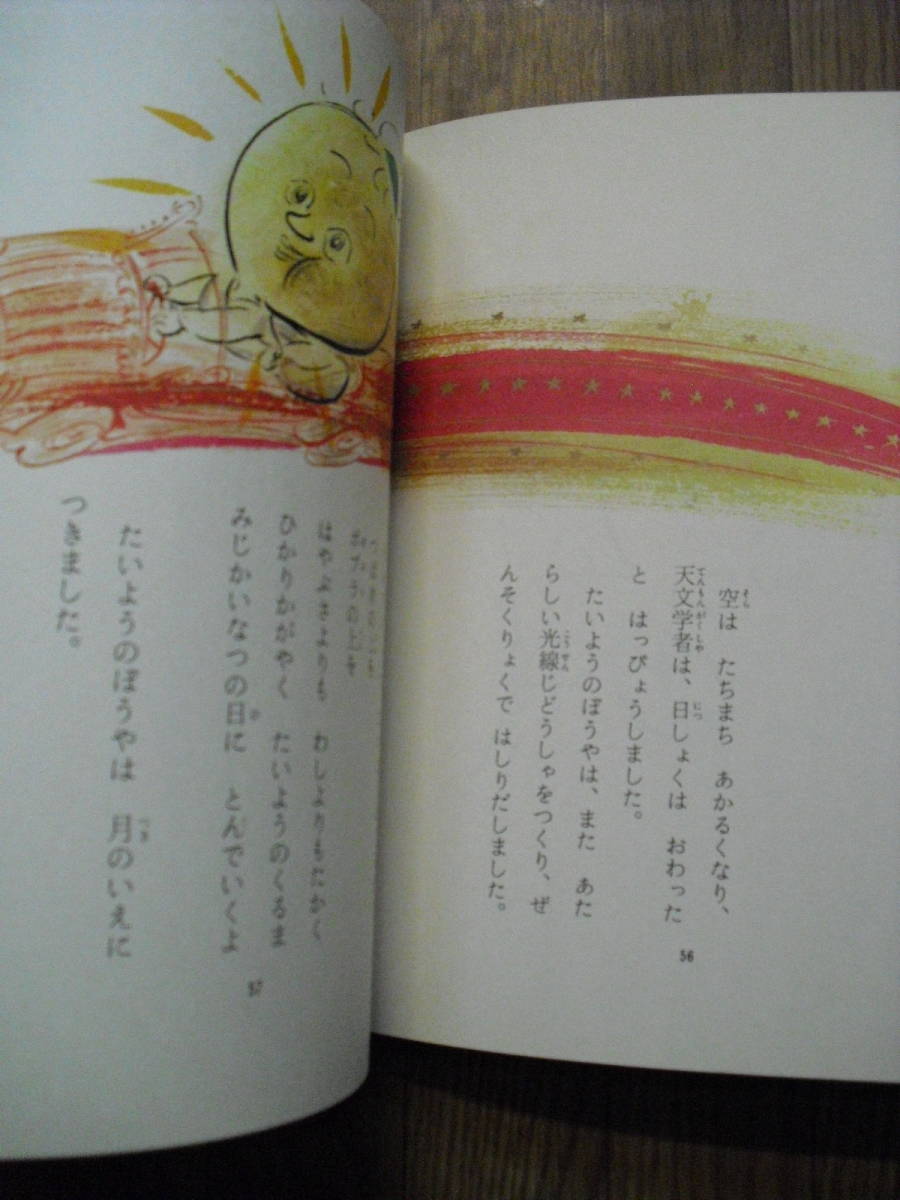 空は　たちまち　あかるくなり、
天文学者は、日しょくは　おわった
と　はっぴょうしました。
たいようのぼうやは、また　あた
らしい光線じどうしゃをつくり、ぜ
んそくりょくで　はしりだしました。
56
はやぶさよりも　わしよりもたかく
ひかりかがやく　たいようのくるま
みじかいなつの日に　とんでいくよ
たいようのぼうやは　月のいえに
つきました。
57